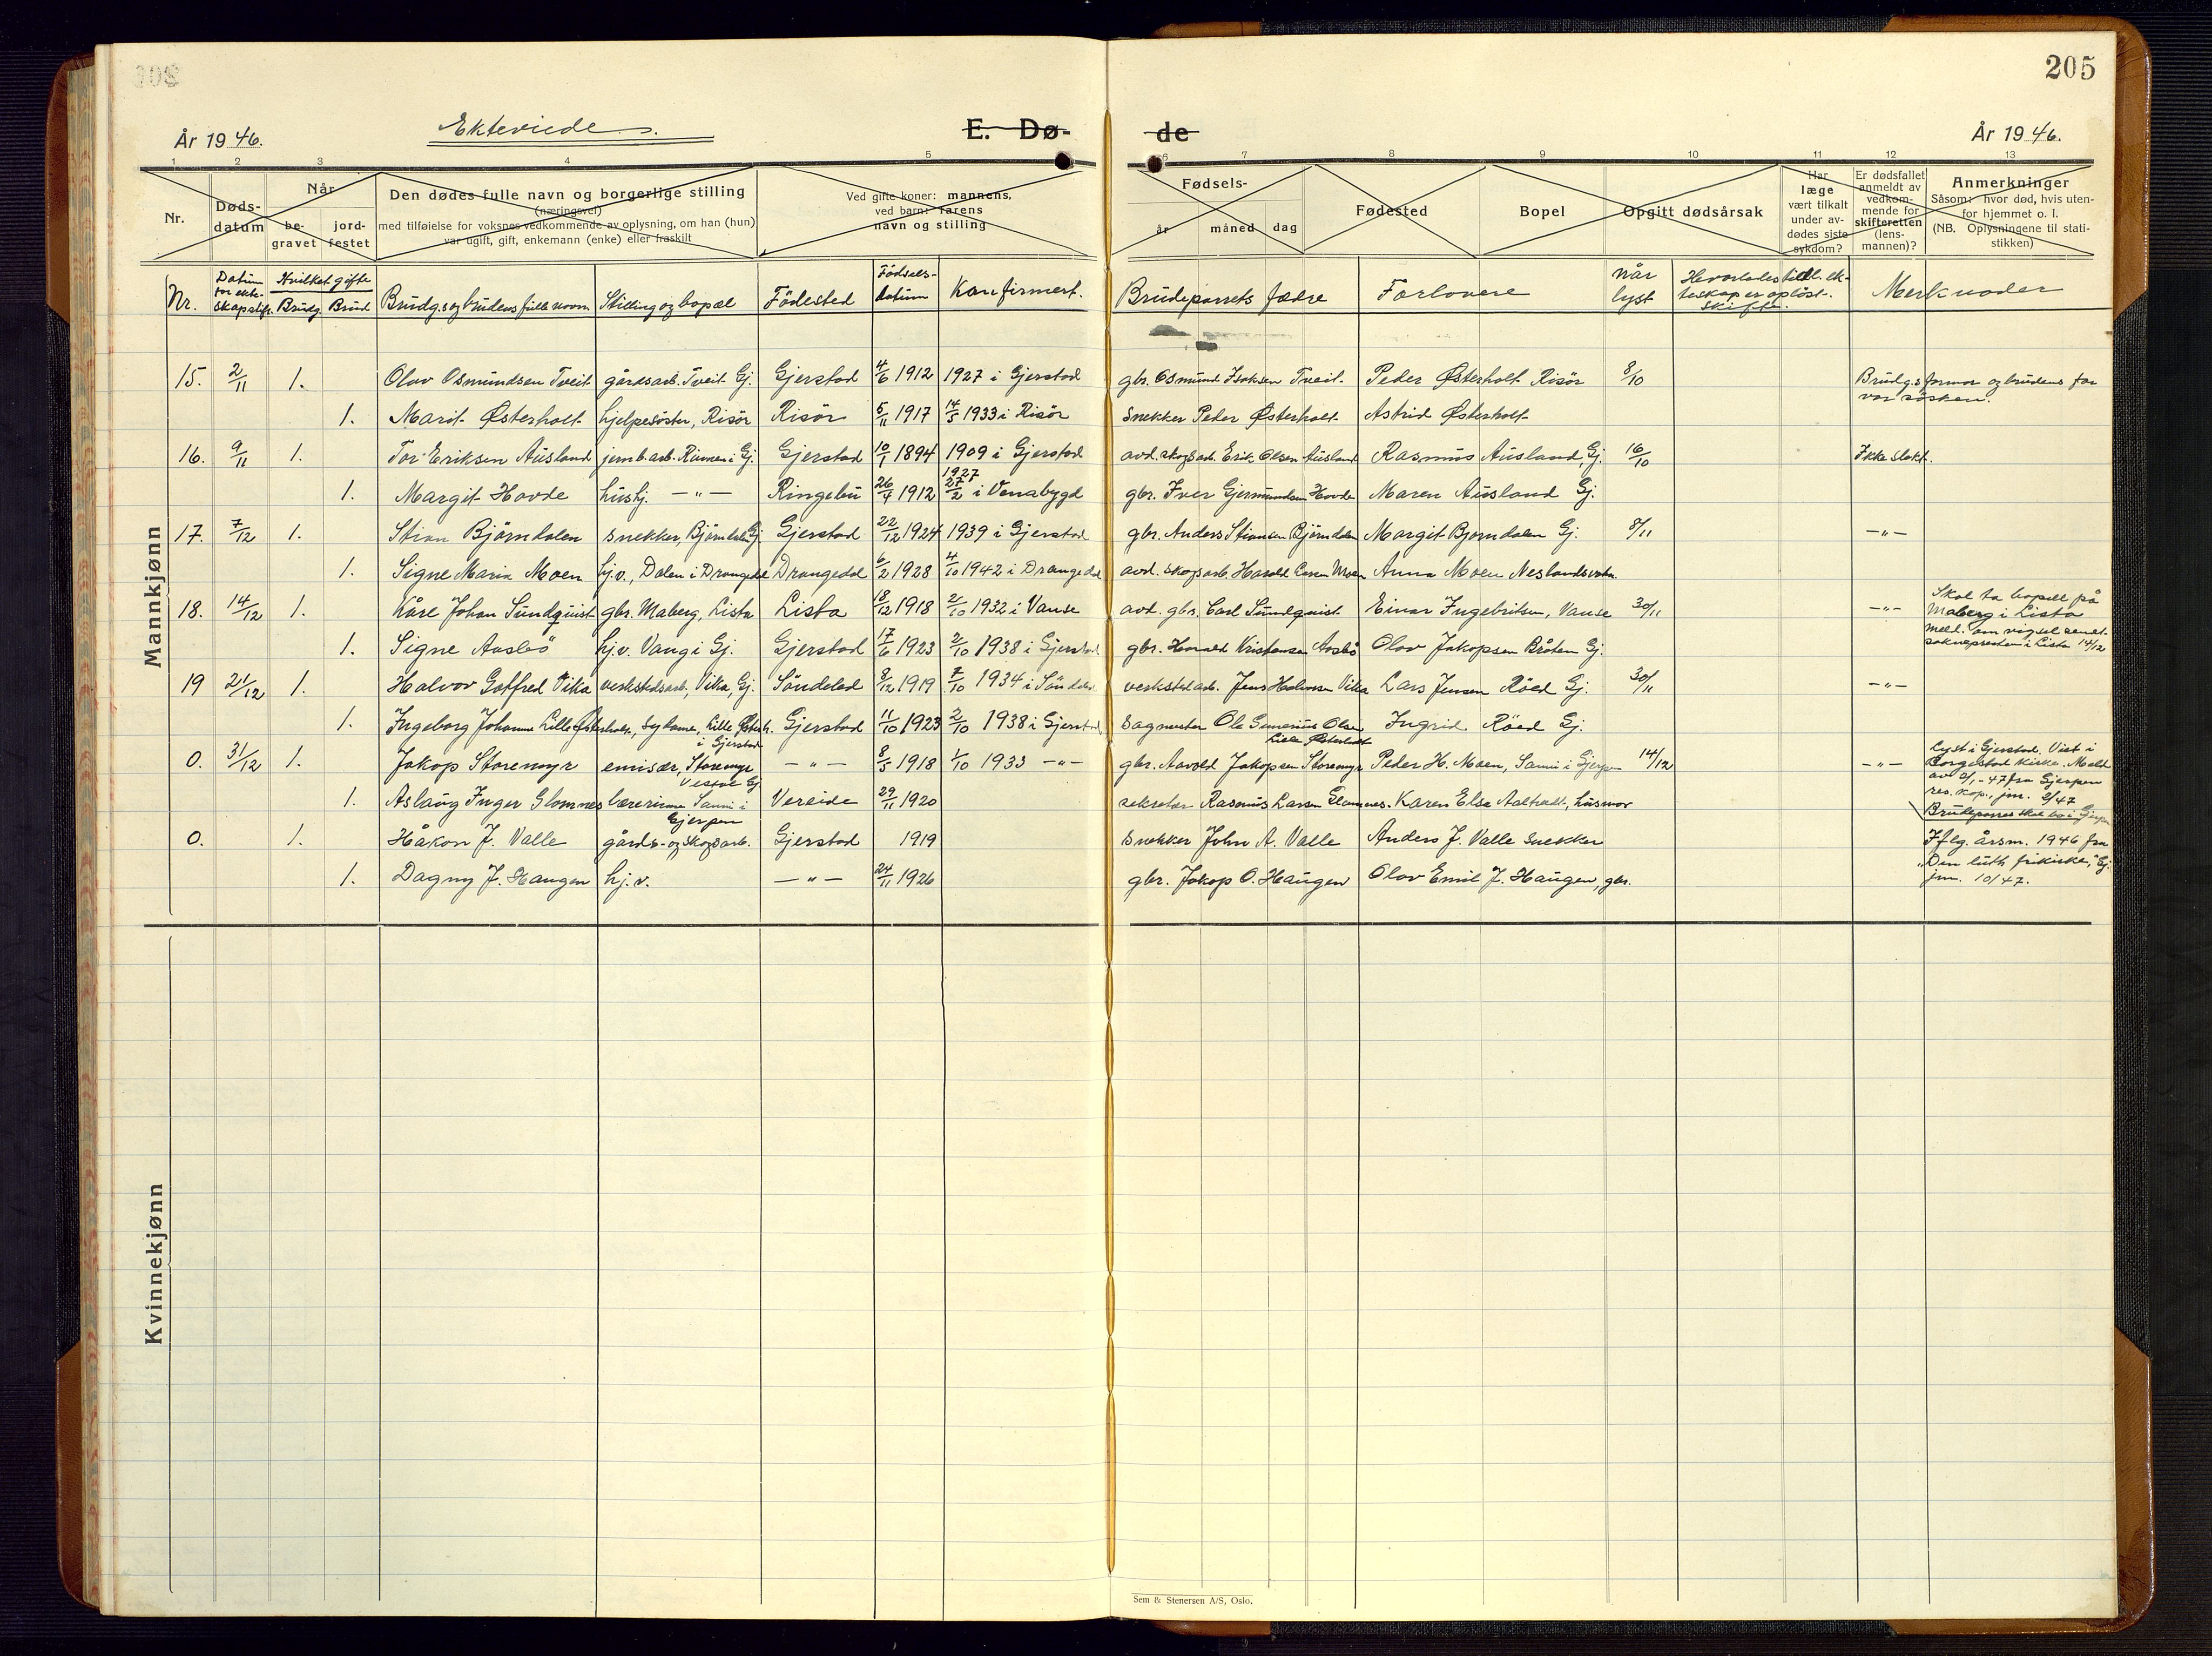 205
År 1946.
Ekteviede.
E. Dø-
de
År 1946.
1 2 3 4 5 6 7 8 9 10 11 12 13
Nr.
Døds-
datum
Når
be-
gravet
jord-
festet
Den dødes fulle navn og borgerlige stilling
(næringsvei)
med tilføielse for voksnes vedkommende av oplysning, om han (hun)
var ugift, gift, enkemann (enke) eller fraskilt
Ved gifte koner: mannens,
ved barn: farens
navn og stilling
Fødsels-
år måned dag
Fødested
Bopel
Opgitt dødsårsak
Har
læge
vært tilkalt
under av-
dødes siste
sykdom?
Er dødsfallet
anmeldt av
vedkom-
mende for
skifteretten
(lens-
mannen)?
Anmerkninger
Såsom: hvor død, hvis uten-
for hjemmet o. l.
(NB. Oplysningene til stati-
stikken)
Nr.
Datum
for ekte-
skapstift.
Hvilket gifte
Brudg. Brud
Brudg.s og brudens fulle navn
Stilling og bopæl
Födested
Födsels-
datum
Konfirmert.
Brudeparrets fædre
Forlovere
Når
lyst
Hvorledes tidl. ek-
teskap er oplöst.
Skifte.
Merknader
15. 2/11 1. Olav Osmundsen Tveit gårdsarb. Tveit Gj. Gjerstad 4/6 1912 1927 i Gjerstad gbr. Osmund Isaksen Tveit. Peder Østerholt Risör 8/10 Brudg.s farmor og brudens far
var søsken.
1. Marit Østerholt hjelpesöster, Risör Risör 5/11 1917 14/5 1933 i Risör snekker Peder Østerholt Astrid Østerholt
16. 9/11 1. Tor Eriksen Ausland jernb.arb. Rismen i Gj. Gjerstad 10/1 1894 1909 i Gjerstad avd. skogsarb. Erik Olsen Ausland Rasmus Ausland, Gj. 16/10 Ikke slekt.
1. Margit Hovde hushj. —"— Ringebu 26/7 1912 27/2 1927 i Venabygd gbr. Iver Gjermundsen Hovde Maren Ausland Gj.
17. 7/12 1. Stian Björndalen snekker, Björndalen Gj. Gjerstad 22/12 1924 1939 i Gjerstad gbr. Anders Stiansen Björndalen Margit Bjorndalen Gj. 8/11 —"—
1. Signe Maria Moen hj.v., Dalen i Drangedal Drangedal 6/2 1928 4/10 1942 i Drangedal avd. skogsarb. Harald Larsen Moen Anna Moen Neslandsvatn.
18. 14/12 1. Kåre Johan Sundquist gbr. Maberg, Lista Lista 18/12 1918 2/10 1932 i Vanse avd. gbr. Carl Sundquist Einar Ingebritsen, Vanse 30/11 —"— Skal ta bopell på
Maberg i Lista
Meld. om vigsel sendt
sokneprosten i Lista 14/12
1. Signe Aaslö hj.v. Vang i Gj. Gjerstad 17/6 1923 2/10 1938 i Gjerstad gbr. Harald Kristensen Aaslö Olav Jakopsen Bråten Gj.
19 21/12 1. Halvor Gotfred Vika verkstedsarb. Vika, Gj. Söndeled 8/12 1919 7/10 1934 i Söndeled verkstedarb. Jens Halvorsen Vika Lars Jensen Röed Gj. 30/11 —"—
1. Ingeborg Johanne Lille Østerholt, sydame, Lille Østerh.
i Gjerstad Gjerstad 11/10 1923 2/10 1938 i Gjerstad Sagmester Ole Olsen
Lille Østerholt Ingrid Röed Gj.
0. 31/12 1. Jakop Storemyr emisær, Storemyr
Vestöl Gj. —"— 8/5 1918 1/10 1933 —"— gbr. Aavold Jakopsen Storemyr Peder H. Moen, Sanni i Gjerpen 14/12 —"— Lyst i Gjerstad. Viet i
Borgestad kirke. Meld.
av 2/1-47 fra Gjerpen
res. kap., jnr. 2/47
Brudeparret skal bo i Gjerpen
1. Aslaug Inger Glomnes lærerinne Sanni i
Gjerpen Vereide 29/11 1920 sekretær Rasmus Larsen Glomnes. Karen Else Aaltvedt, husmor
0. 1. Håkon J. Valle gårds- og skogsarb. Gjerstad 1919 snekker John A. Valle Anders J. Valle snekker Iflg. årsm. 1946 fra
"Den luth. frikirke", Gj.
jnr. 10/47.
1. Dagny J. Haugen hj.v. —"— 24/11 1926 gbr. Jakop O. Haugen Olav Emil J. Haugen, gbr.
Mannkjønn
Kvinnekjønn
Sem & Stenersen A/S, Oslo.